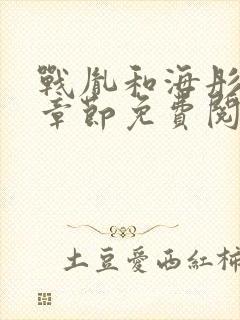 戰胤和海彤
章節免費閱
土豆愛西紅柿